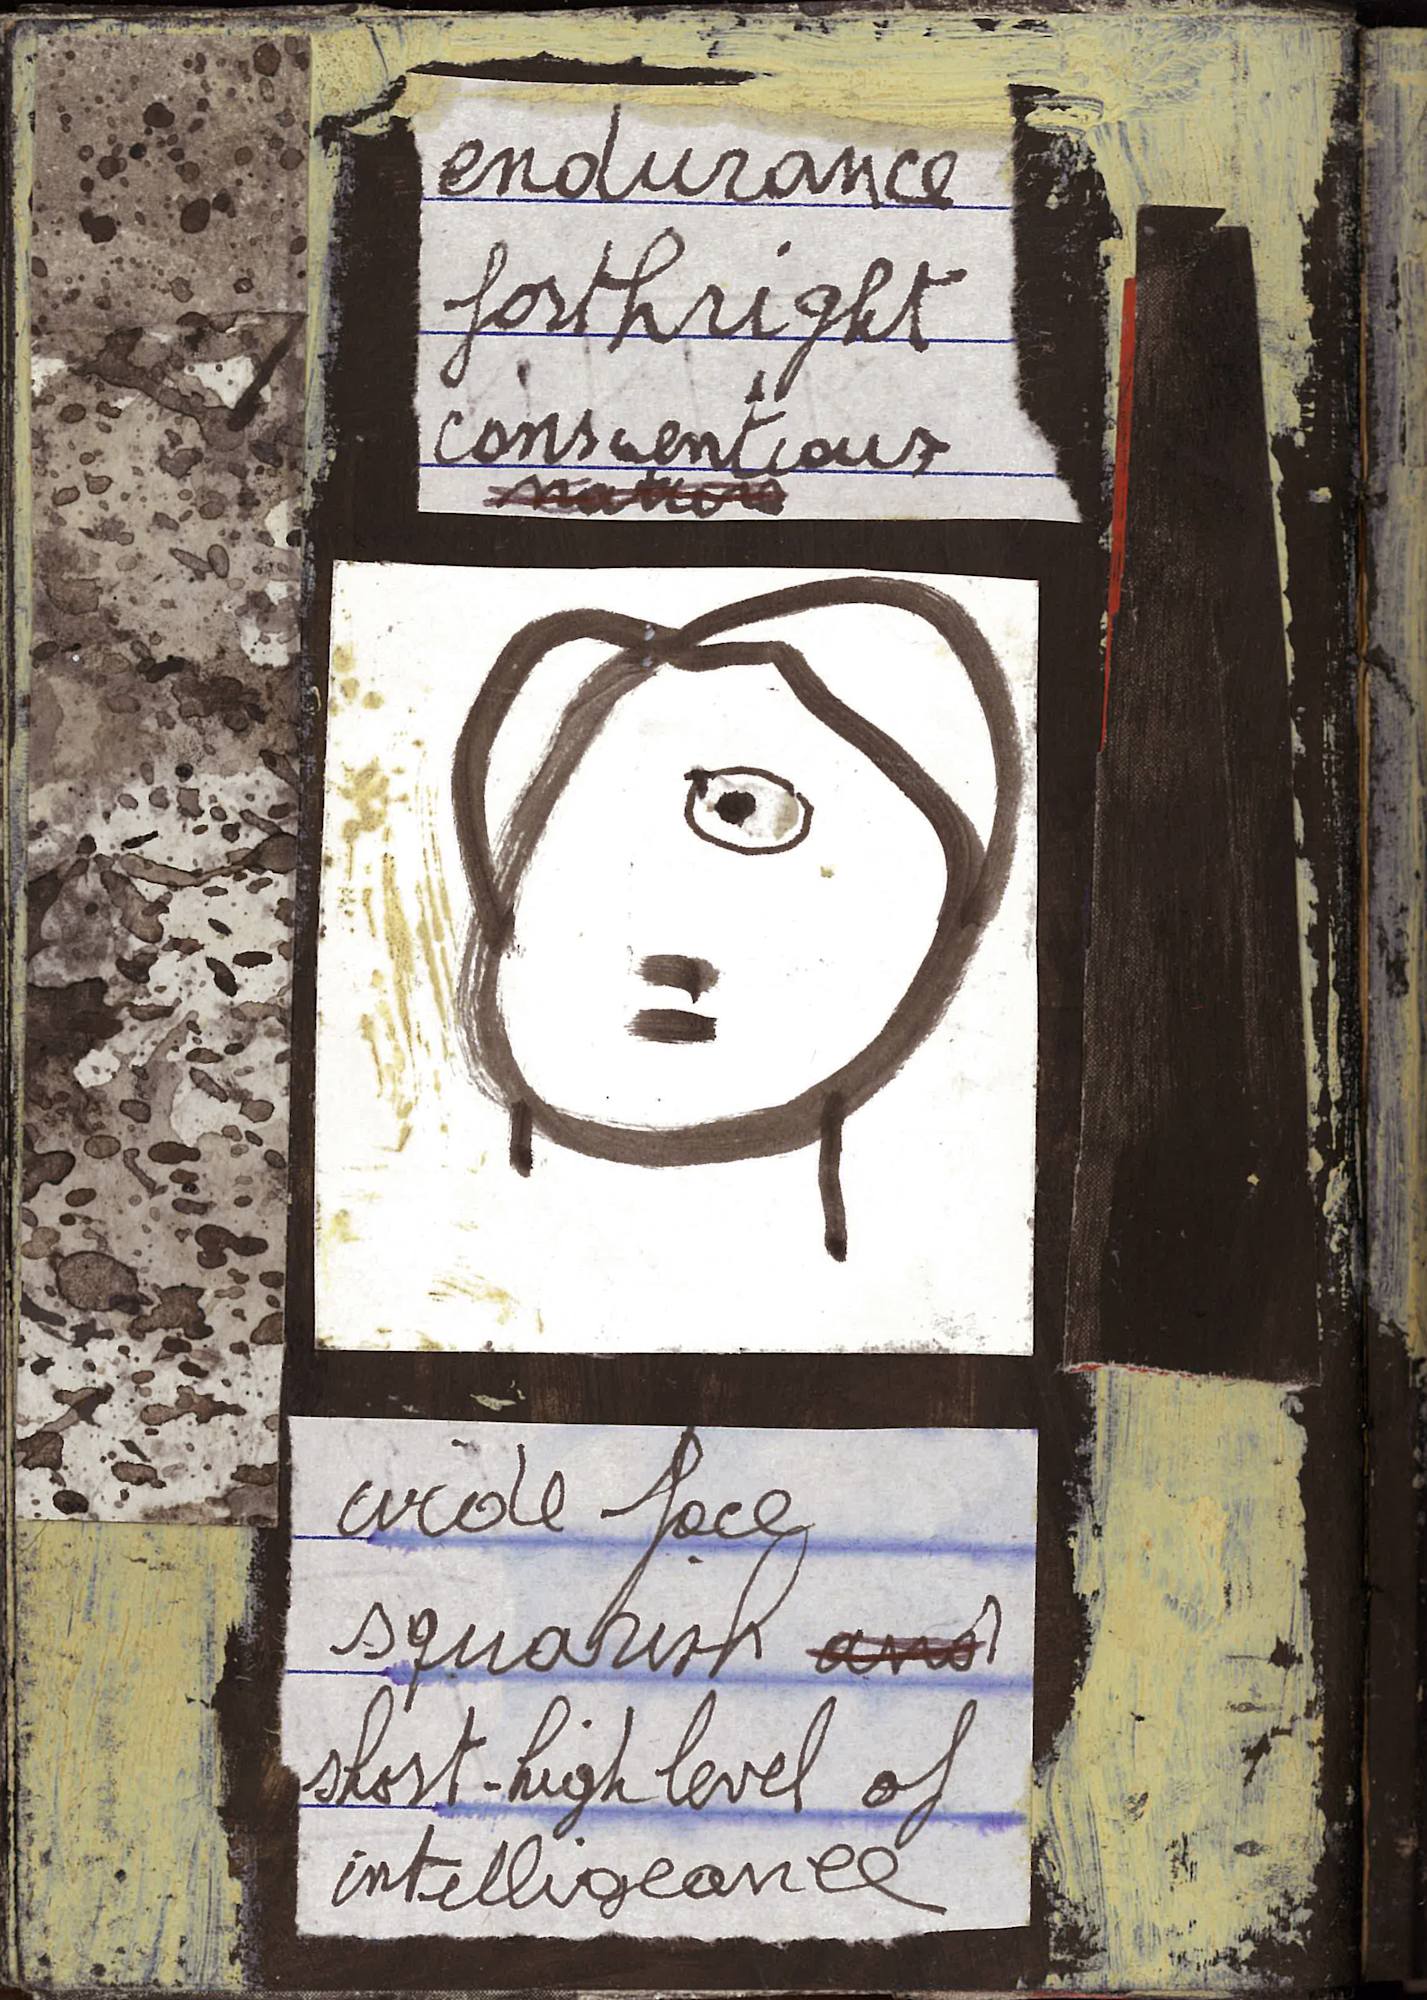 endurance
forthright
conscientious
wide face
squarish and
short-high level of
intelligeance